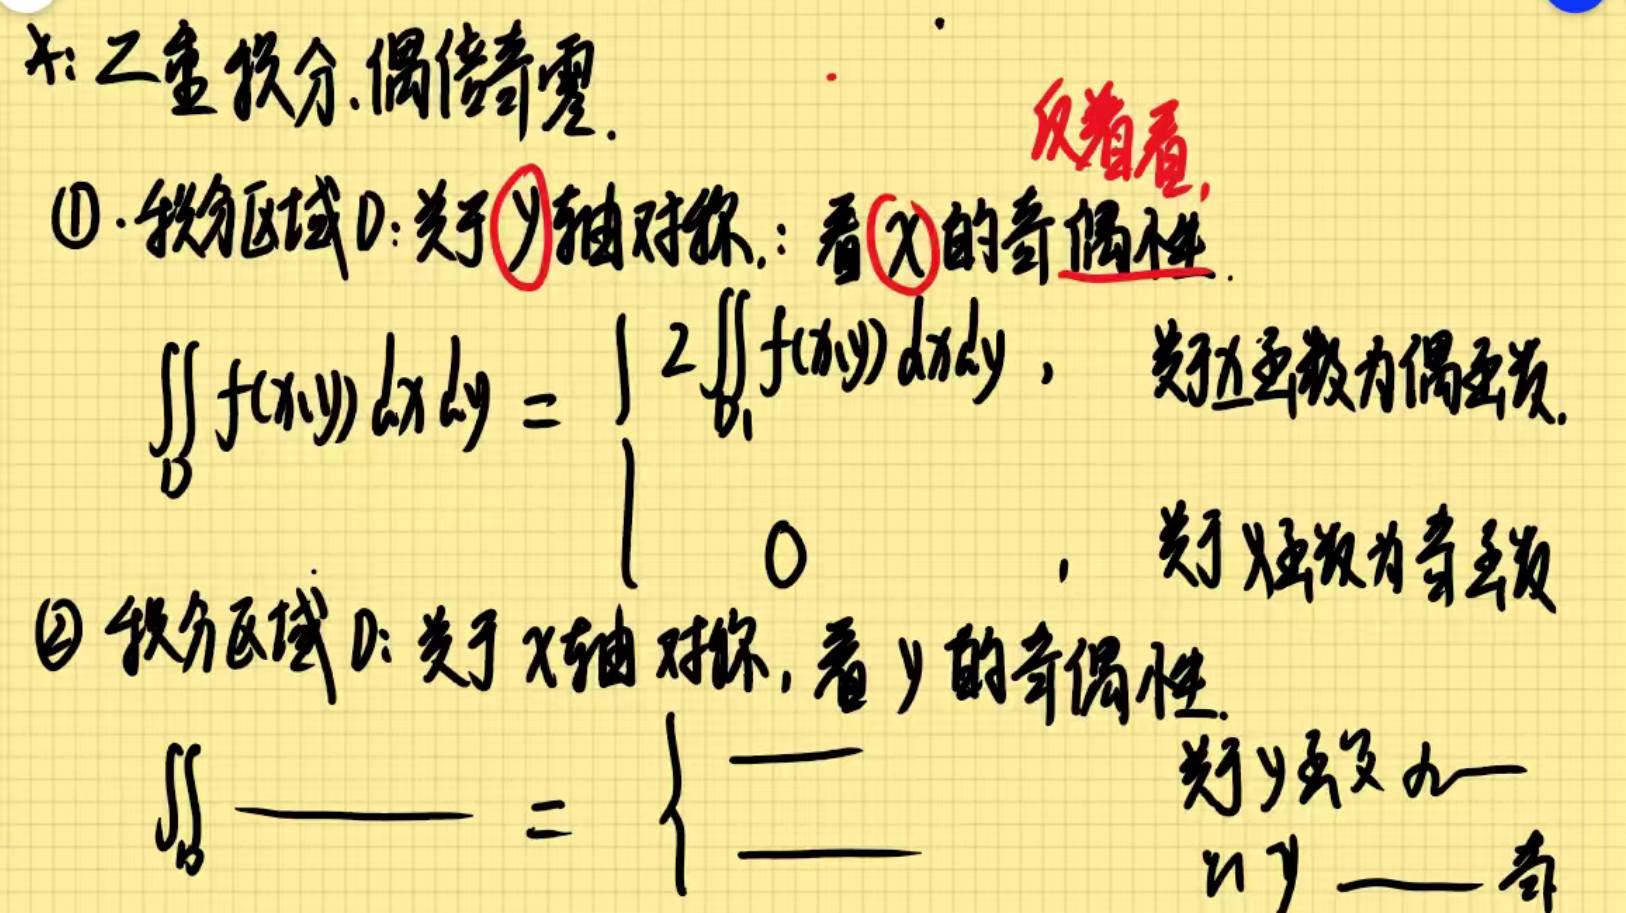 *: 二重积分.偶倍奇零.
反着看,
①.积分区域D:关于y轴对称.: 看x的奇偶性.
∬_D f(x,y)dxdy = { 2∬_{D₁} f(x,y)dxdy , 关于x函数为偶函数.
0 , 关于x函数为奇函数
② 积分区域D:关于x轴对称,看y的奇偶性.
∬_D —— = { —— 关于y函数为——
—— 〃 y —— 奇